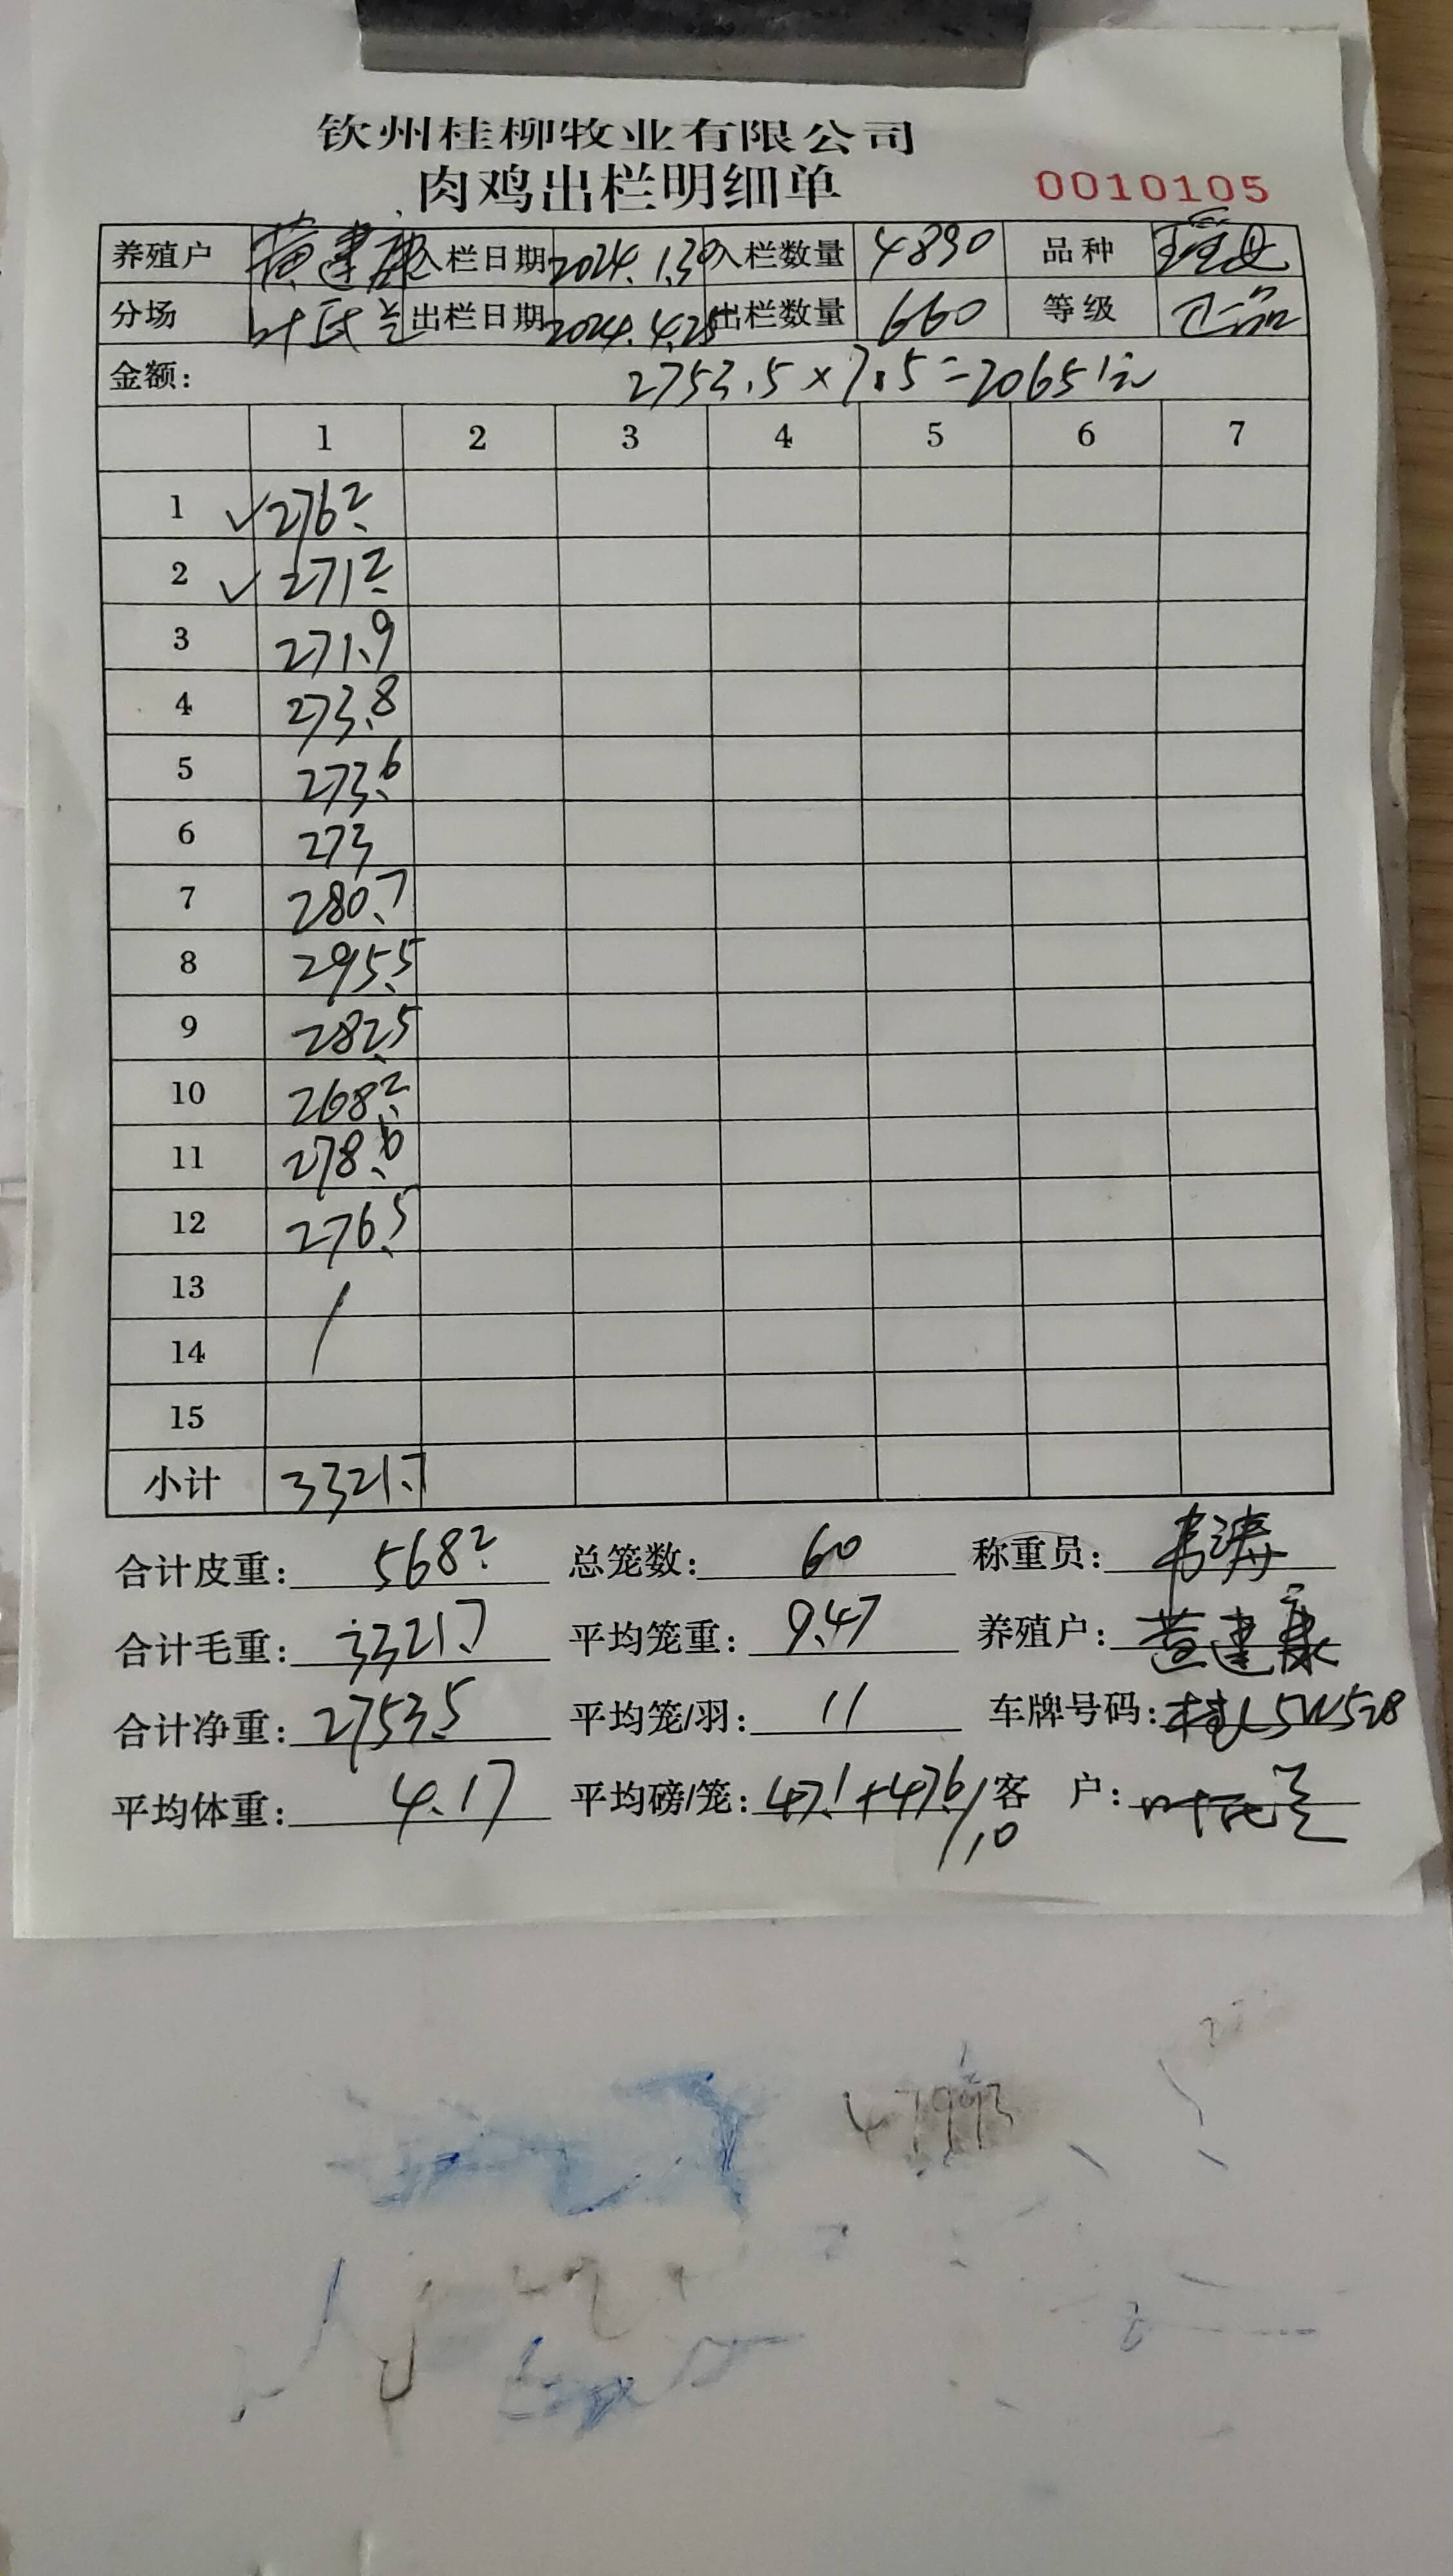 钦州桂柳牧业有限公司
肉鸡出栏明细单 0010105
养殖户 黄建康 入栏日期 2024.1.30 入栏数量 4890 品种
分场 叶氏兰 出栏日期 2024.4.25 出栏数量 660 等级 正品
金额: 2753.5×7.5=20651元
1 2 3 4 5 6 7
1 276.2
2 271.2
3 271.9
4 273.8
5 273.6
6 273
7 280.7
8 295.5
9 282.5
10 268.2
11 278.6
12 276.5
13
14
15
小计 3321.7
合计皮重: 568.2 总笼数: 60 称重员: 韦涛
合计毛重: 3321.7 平均笼重: 9.47 养殖户: 黄建康
合计净重: 2753.5 平均笼/羽: 11 车牌号码: 桂L5W528
平均体重: 4.17 平均磅/笼: 47.1+47.6/10 客 户: 叶氏兰